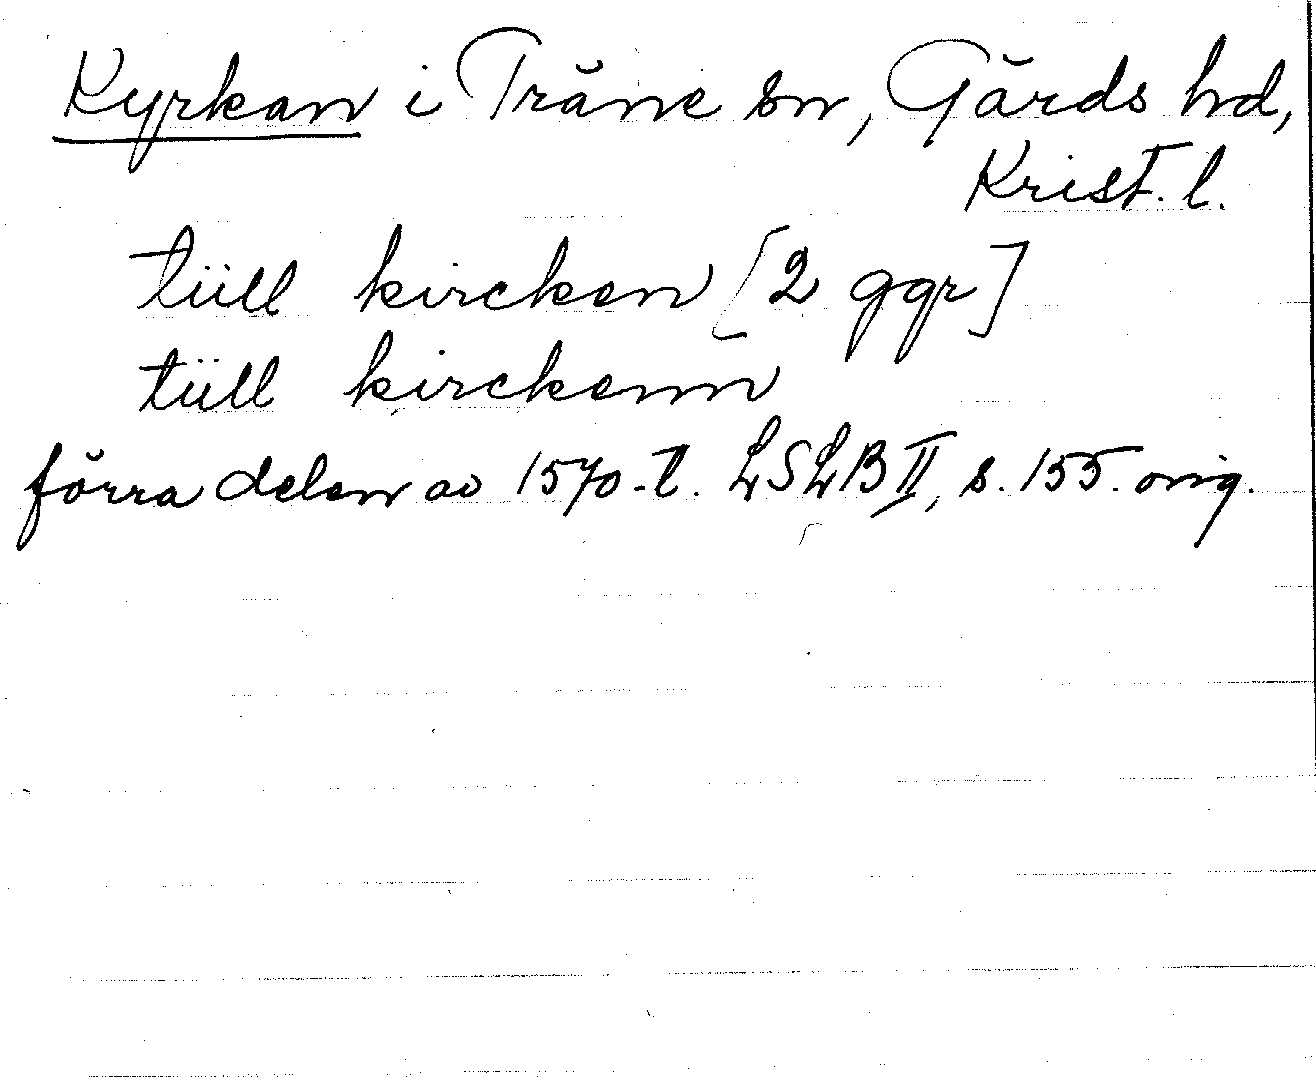 Kyrkan i Träne sn, Gärds hd,
Krist. l.
tüll kircken [2 ggr]
tüll kirckenn
förra delen av 1570-t. LSLB II, s. 155. orig.